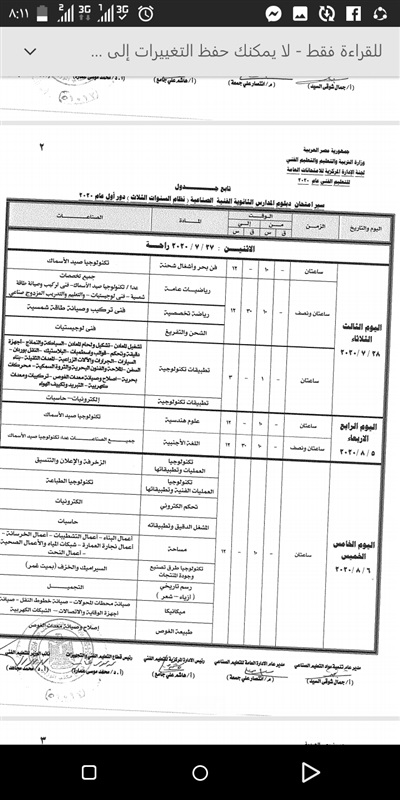 ٨:١١
للقراءة فقط - لا يمكنك حفظ التغييرات إلى ...
أ / جمال شوقى السيد
م / انتصار على جمعة
أ / هاشم على جامع
٢
جمهورية مصر العربية
وزارة التربية والتعليم والتعليم الفنى
لجنة الإدارة المركزية للامتحانات العامة
للتعليم الفنى عام ٢٠٢٠
تابع جدول
سير امتحان دبلوم المدارس الثانوية الفنية الصناعية ( نظام السنوات الثلاث ) دور أول عام ٢٠٢٠
اليوم والتاريخ
الزمن
الوقت
من
إلى
ق س ق س
المادة
الصناعات
الاثنين : ٢٧ / ٧ / ٢٠٢٠ راحة
اليوم الثالث
الثلاثاء
٢٨ / ٧ / ٢٠٢٠
ساعتان
- ١٠ - ١٢
فن بحر وأشغال شحنة
تكنولوجيا صيد الأسماك
ساعتان ونصف
- ١٠ ٣٠ ١٢
رياضيات عامة
جميع تخصصات
عدا / تكنولوجيا صيد الأسماك - فنى تركيب وصيانة طاقة
شمسية - فنى لوجستيات - والتعليم والتدريب المزدوج صناعى
رياضة تخصصية
فنى تركيب وصيانة طاقة شمسية
الشحن والتفريغ
فنى لوجستيات
ساعتان
- ١ - ٣
تطبيقات تكنولوجية
تطبيقات تكنولوجية
إلكترونيات - حاسبات
اليوم الرابع
الأربعاء
٥ / ٨ / ٢٠٢٠
ساعتان
- ١٠ - ١٢
علوم هندسية
تكنولوجيا صيد الأسماك
ساعتان ونصف
- ١٠ ٣٠ ١٢
اللغة الأجنبية
جميع الصناعات عدا تكنولوجيا صيد الأسماك
اليوم الخامس
الخميس
٦ / ٨ / ٢٠٢٠
ساعتان
- ١٠ - ١٢
تكنولوجيا
العمليات وتطبيقاتها
الزخرفة والإعلان والتنسيق
تكنولوجيا
العمليات الفنية وتطبيقاتها
تكنولوجيا الطباعة
تحكم إلكترونى
الكترونيات
المشغل الدقيق وتطبيقاته
حاسبات
مساحة
أعمال البناء - أعمال التشطيبات - أعمال الخرسانة -
أعمال نجارة العمارة - شبكات المياه والأعمال الصحية
- أعمال النحت
تكنولوجيا طرق تصنيع
وجودة المنتجات
السيراميك والخزف ( بميت غمر )
رسم تاريخى
( أزياء - شعر )
التجميل
ميكانيكا
صيانة محطات المحولات - صيانة خطوط النقل - صيانة
أجهزة الوقاية والاتصالات - الشبكات الكهربية
طبيعة الغوص
إصلاح وصيانة معدات الغوص
مدير عام تنمية مواد التعليم الصناعى
أ / جمال شوقى السيد
مدير عام الإدارة العامة للتعليم الصناعى
م / انتصار على جمعة
رئيس الإدارة المركزية للتعليم الفنى
أ / هاشم على جامع
رئيس قطاع التعليم الفنى والتجهيزات
أ . د / محمد موسى عمارة
أ . د / محمد مجاهد
٣